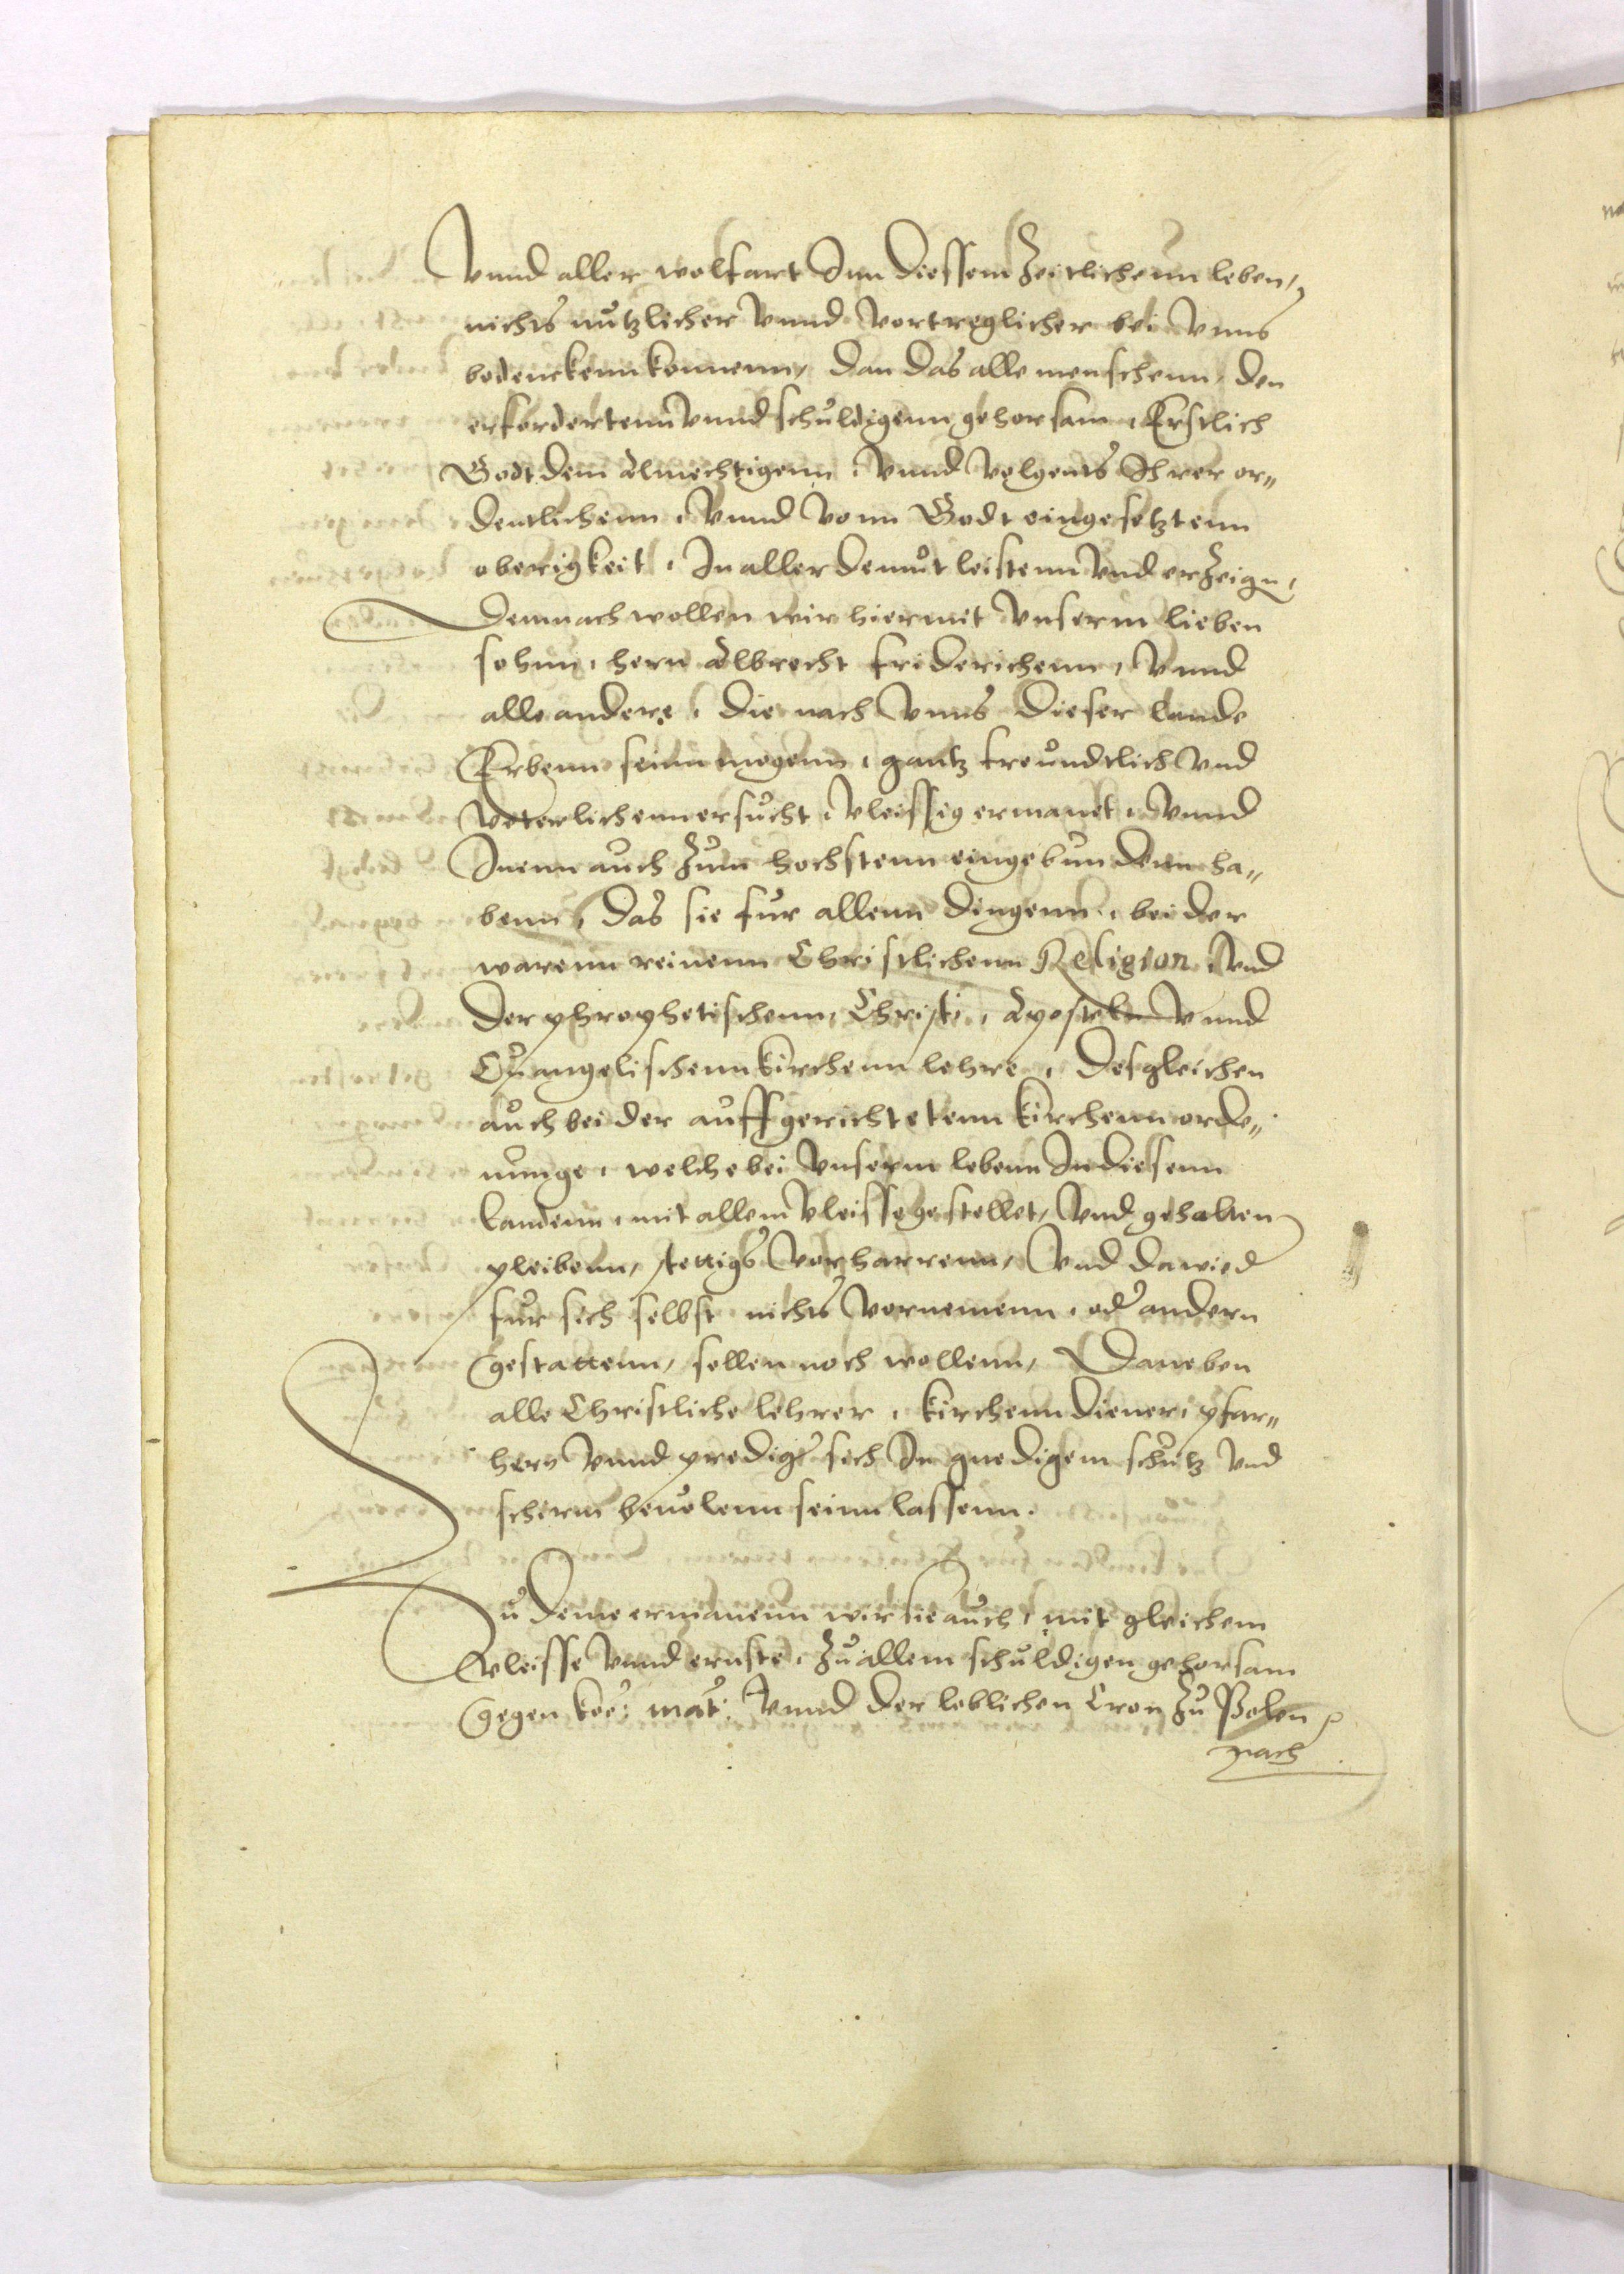 Vnnd aller wolfart Inn diessem Zeitlichenn leben,
nichts nutzlicher Vnnd vortreglicher bei Vnns
bedenckenn konnenn, dan das alle menschenn, den
erfordertenn Vnnd schuldigenn gehorsam, Erstlich
Godt dem Almechtigenn, Vnnd volgents Ihrer or=
dentlichenn, Vnnd vonn Godt eingesetztenn
oberigkeit, In aller demut leistenn Vnd erZeign,
Demnach wollen wir hiermit Vnserm lieben
sohnn, hern Albrecht friderichenn, Vnnd
alle andere, die nach Vnns dieser lande
Erbenn seinn mogenn, gantz freundtlich Vnd
Veterlichenn ersucht, Vleissig ermanet, Vnnd
Inenn auch Zum hochstenn eingebundenn ha=
benn, das sie fur allenn dingenn, bei der
warenn reinenn Christlichenn Religion, Vnd
der phrophetischenn, Christi, Aposteln Vnnd
Euangelischenn kirchenn lehre, desgleichen
auch bei der auffgerichtetenn kirchenn orde=
nunge, welche bei Vnserm lebenn In diesenn
landenn, mit allem Vleisse gestellet, Vnd gehalten
pleibenn, stettigs Vorharrenn, Vnd dawied
fur sich selbst nichts Vornemenn, od andern
gestattenn, sollen noch wollenn, Daneben
alle Christliche lehrer, kirchenn diener, pfar=
hern Vnnd predigr sich In gnedigem schutz Vnd
scherm beuolenn seinn lassenn.
Zu deme ermanenn wir sie auch, mit gleichem
Vleisse Vnnd ernste, Zu allem schuldigen gehorsam
gegen koe: mat: Vnnd der loblichen Cron Zu Polen
nach